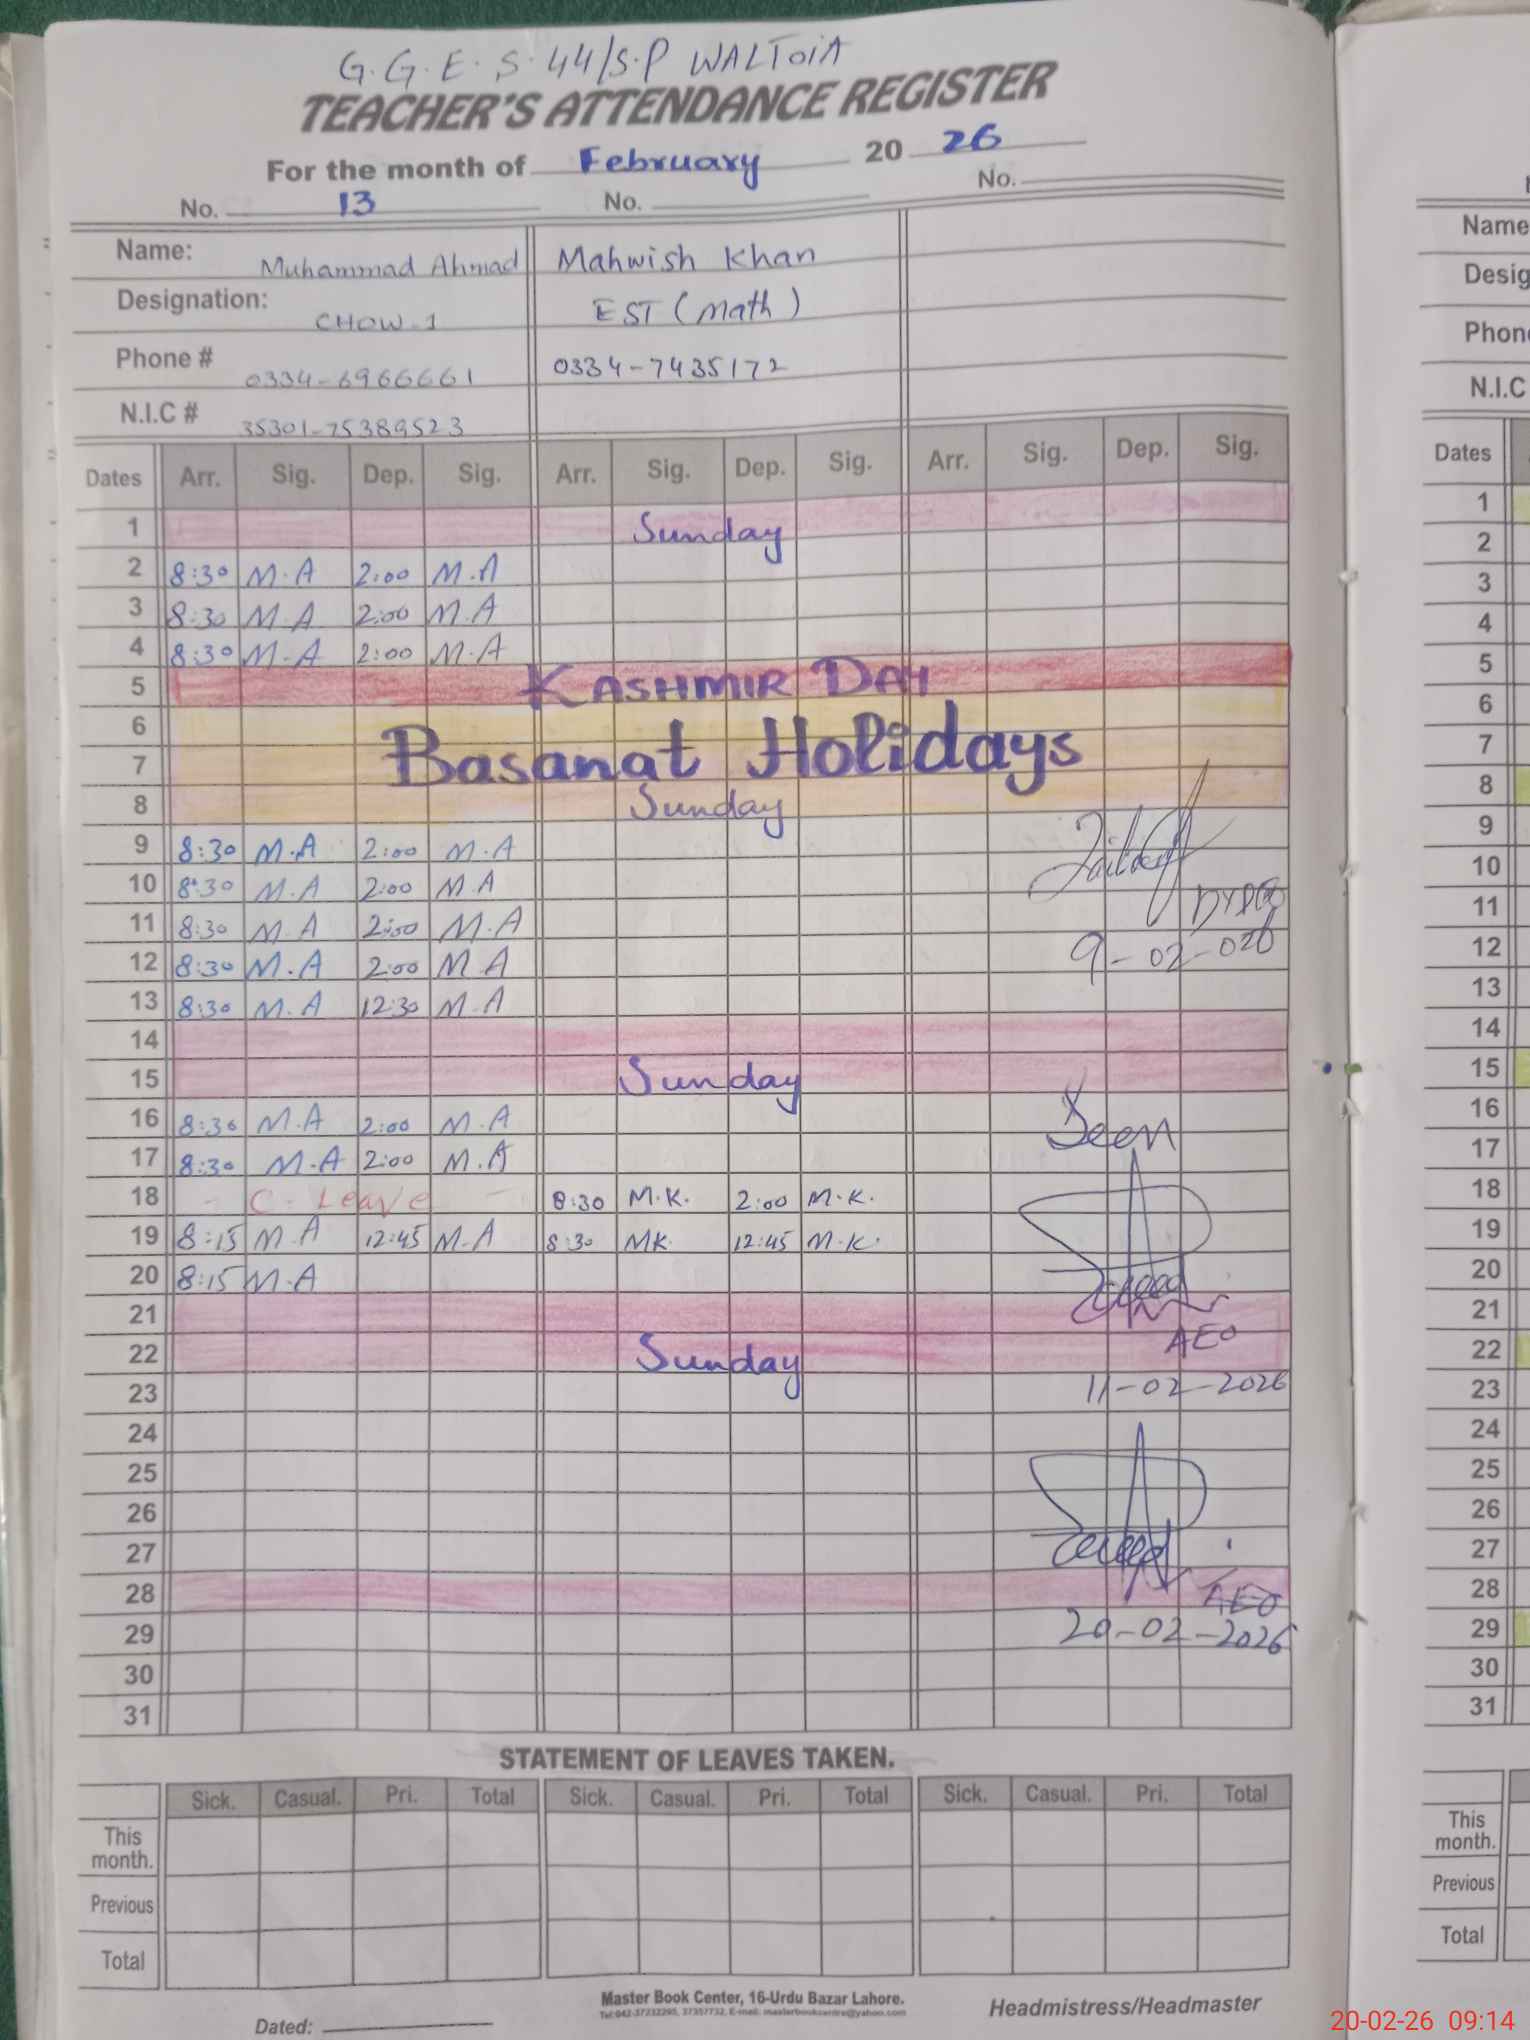 G.G.E.S 44/S.P WALTOIA
TEACHER'S ATTENDANCE REGISTER
For the month of February 20 26
No. 13 No. No.
Name: Muhammad Ahmad Mahwish Khan
Designation: CHOW-1 EST (Math)
Phone # 0334-6966661 0334-7435172
N.I.C # 35301-75389523
Dates Arr. Sig. Dep. Sig. Arr. Sig. Dep. Sig. Arr. Sig. Dep. Sig.
1 Sunday
2 8:30 M.A 2:00 M.A
3 8:30 M.A 2:00 M.A
4 8:30 M.A 2:00 M.A
5 KASHMIR DAY
6
7 Basanat Holidays
8 Sunday
9 8:30 M.A 2:00 M.A
10 8:30 M.A 2:00 M.A
11 8:30 M.A 2:00 M.A
12 8:30 M.A 2:00 M.A
9-02-026
13 8:30 M.A 12:30 M.A
14
15 Sunday
16 8:30 M.A 2:00 M.A
Seen
17 8:30 M.A 2:00 M.A
18 - C-Leave - 8:30 M.K. 2:00 M.K.
19 8:15 M.A 12:45 M.A 8:30 MK 12:45 M.K.
20 8:15 M.A
21
AEO
22 Sunday
11-02-2026
23
24
25
26
27
28
AEO
29
20-02-2026
30
31
STATEMENT OF LEAVES TAKEN.
Sick. Casual. Pri. Total Sick. Casual. Pri. Total Sick. Casual. Pri. Total
This month.
Previous
Total
Master Book Center, 16-Urdu Bazar Lahore.
Tel:042-37232295, 37357732, E-mail: masterbookcentre@yahoo.com
Dated:
Headmistress/Headmaster
Name
Desig
Phon
N.I.C
Dates
1
2
3
4
5
6
7
8
9
10
11
12
13
14
15
16
17
18
19
20
21
22
23
24
25
26
27
28
29
30
31
This month.
Previous
Total
20-02-26 09:14